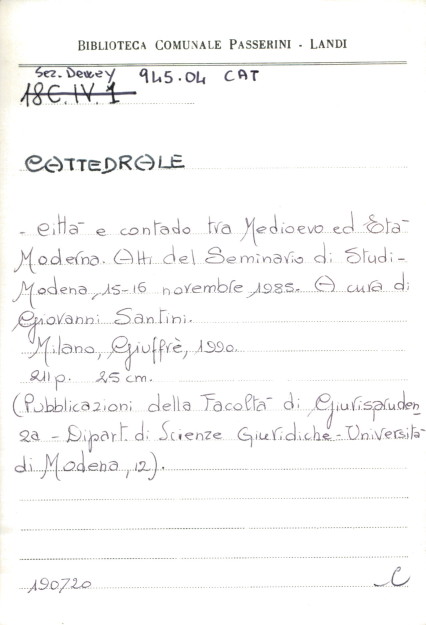 BIBLIOTECA COMUNALE PASSERINI - LANDI
Sez. Dewey 945.04 CAT
18C.IV.1
CATTEDRALE
- città e contado tra Medioevo ed Età
Moderna. Atti del Seminario di Studi -
Modena, 15-16 novembre 1985. A cura di
Giovanni Santini.
Milano, Giuffrè, 1990.
211 p. 25 cm.
(Pubblicazioni della Facoltà di Giurispruden
za - Dipart. di Scienze Giuridiche - Università
di Modena, 12).
190720
C